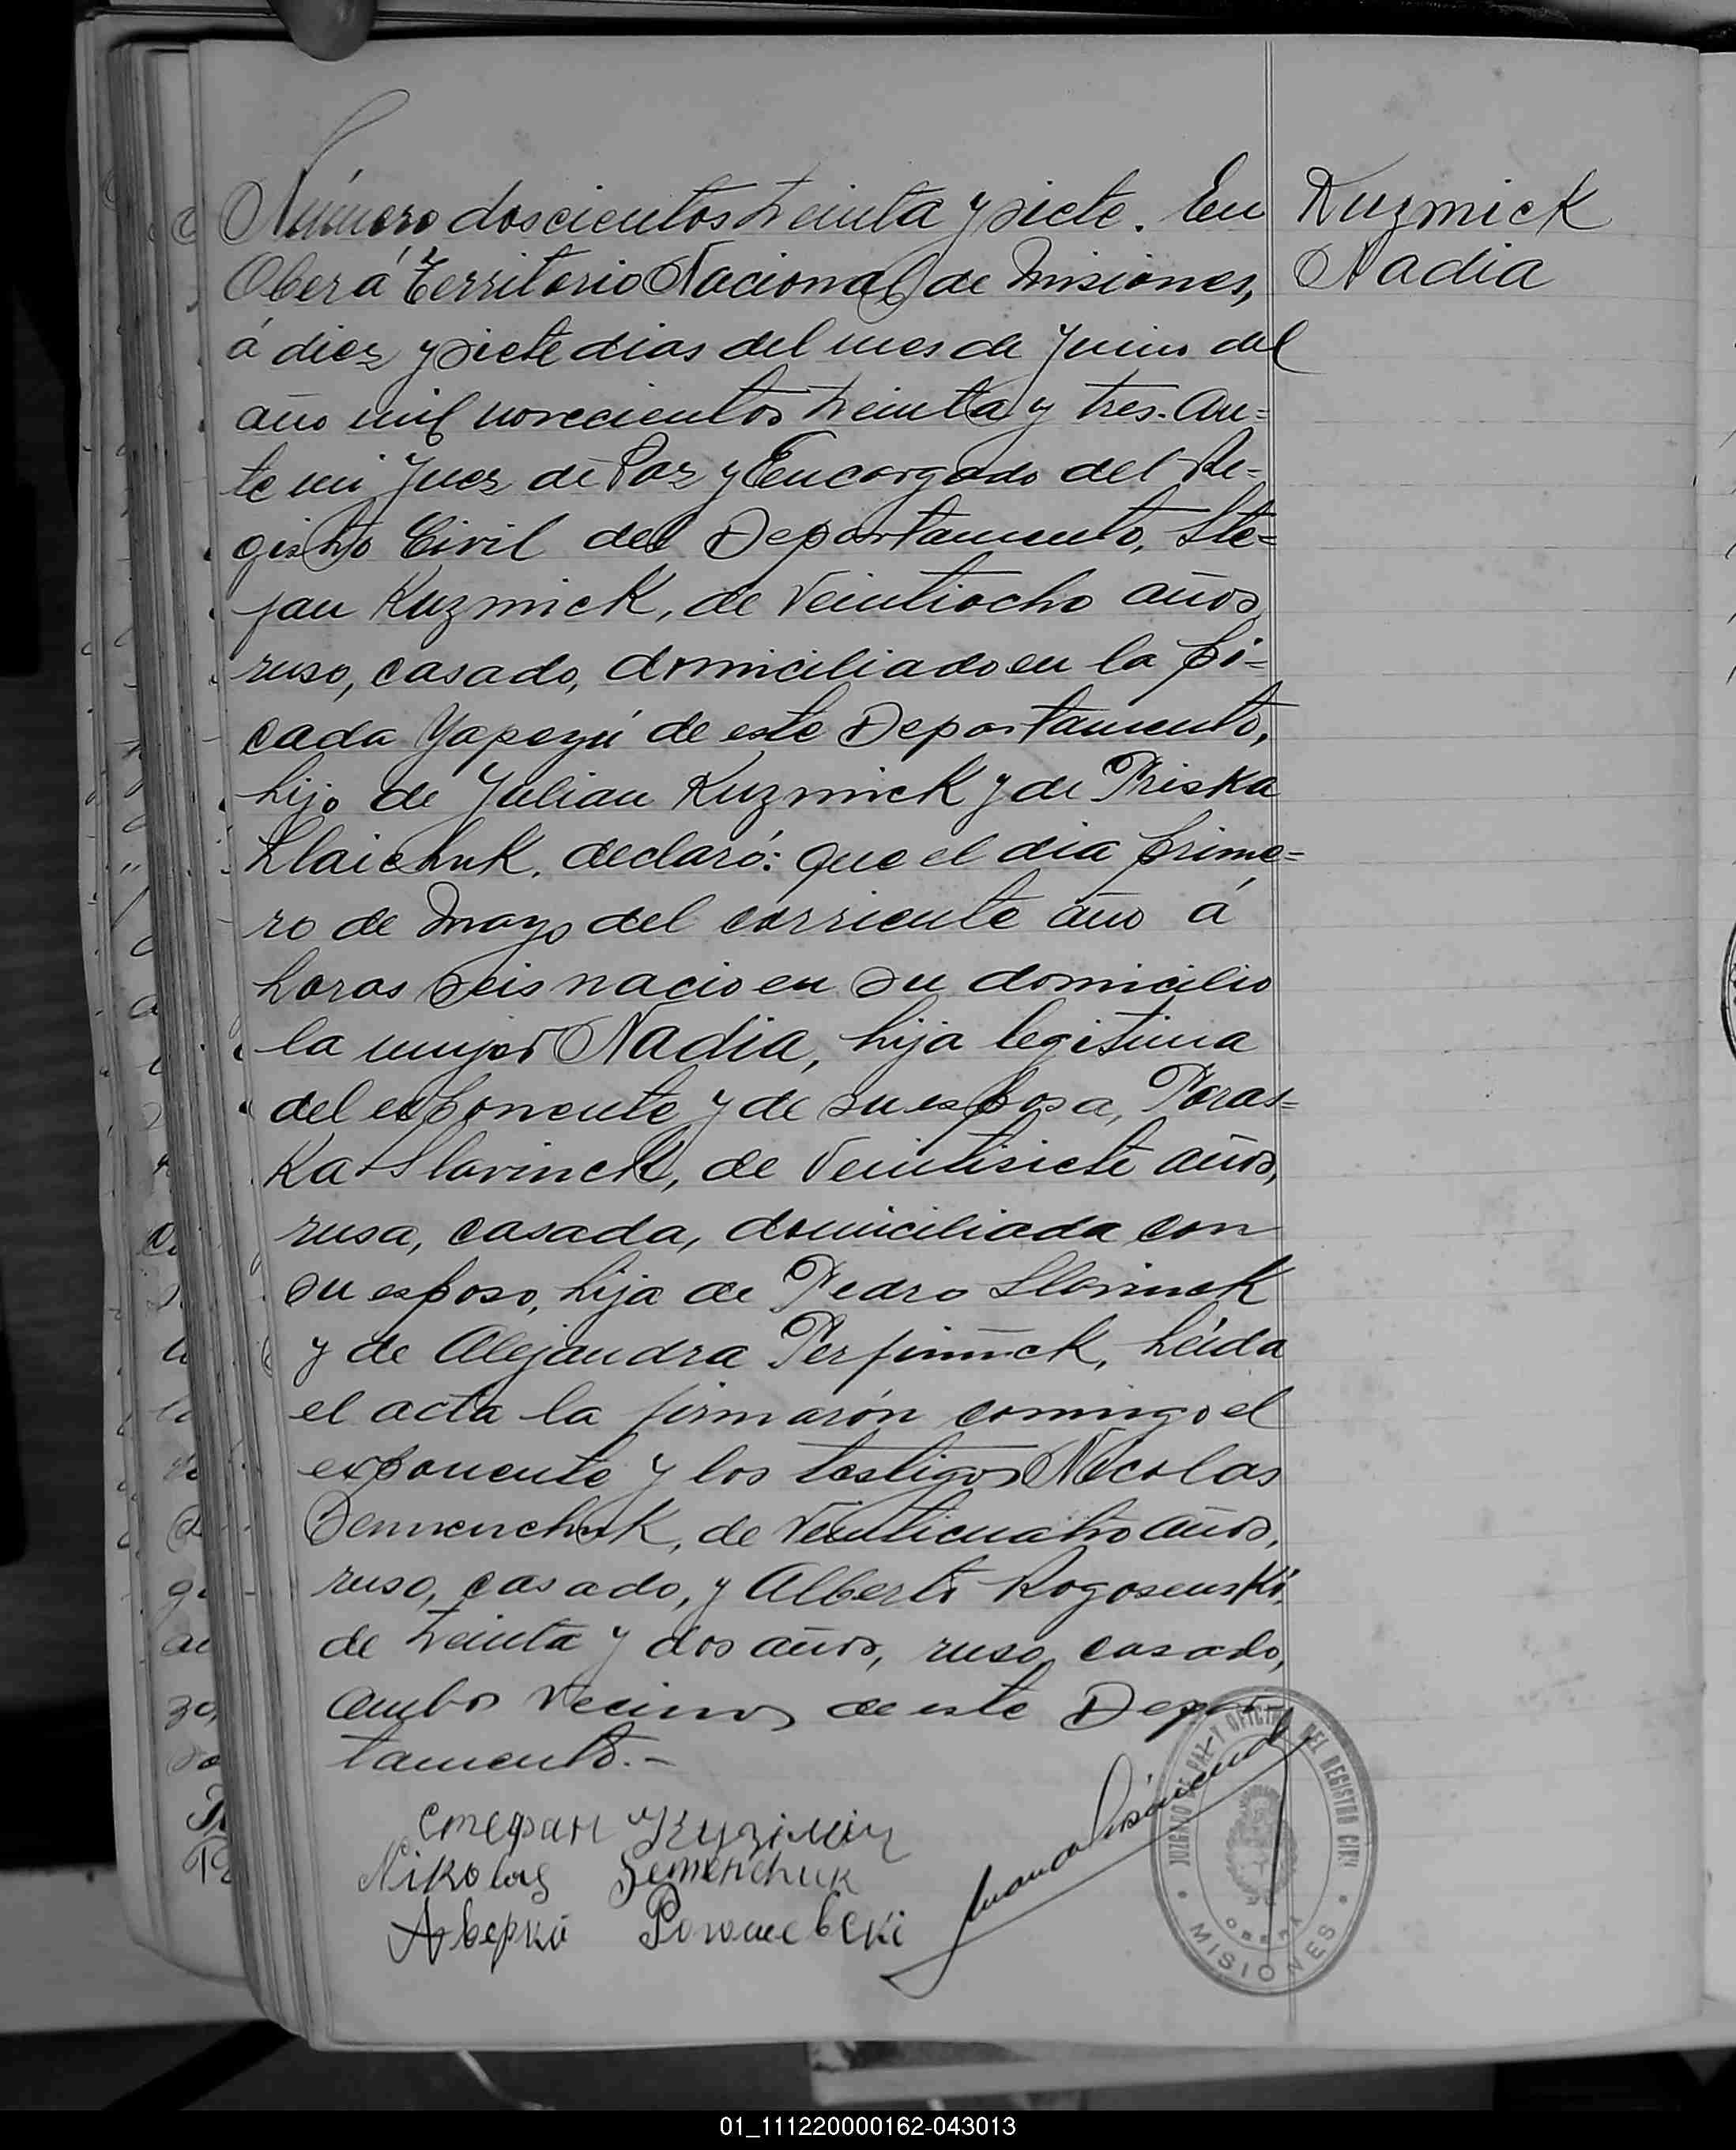 Número doscientos treinta y siete. En
Oberá Territorio Nacional de Misiones,
á diez y siete dias del mes de Junio del
año mil novecientos treinta y tres. An=
te mi Juez de Paz y Encargado del Re-
gistro Civil del Departamento, Ste=
fan Kuzmick, de veintiocho años
ruso, casado, domiciliado en la pi=
cada Yapeyú de este Departamento,
hijo de Julian Kuzmick y de Priska
declaró: que el dia prime=
ro de Mayo del corriente año á
horas seis nacio en su domicilio
la mujer Nadia, hija legitima
del exponente y de su esposa, Paras=
ka Slavinck, de veintisiete años,
rusa, casada, domiciliada con
su esposo, hija de Pedro Slavinck
y de Alejandra leida
el acta la firmarón conmigo el
exponente y los testigos Nicolas
Demenchuk, de veinticuatro años,
ruso, casado, y Alberto Rogosenski,
de treinta y dos años, ruso, casado,
ambos vecinos de este Depar-
tamento.-
Kuzmick
Nadia
стефан
Nikolas Demenchuk
Аверкі Рогошевскі
JUZGADO DE PAZ Y OFICINA DEL REGISTRO CIVIL
OBERA
MISIONES
01_111220000162-043013